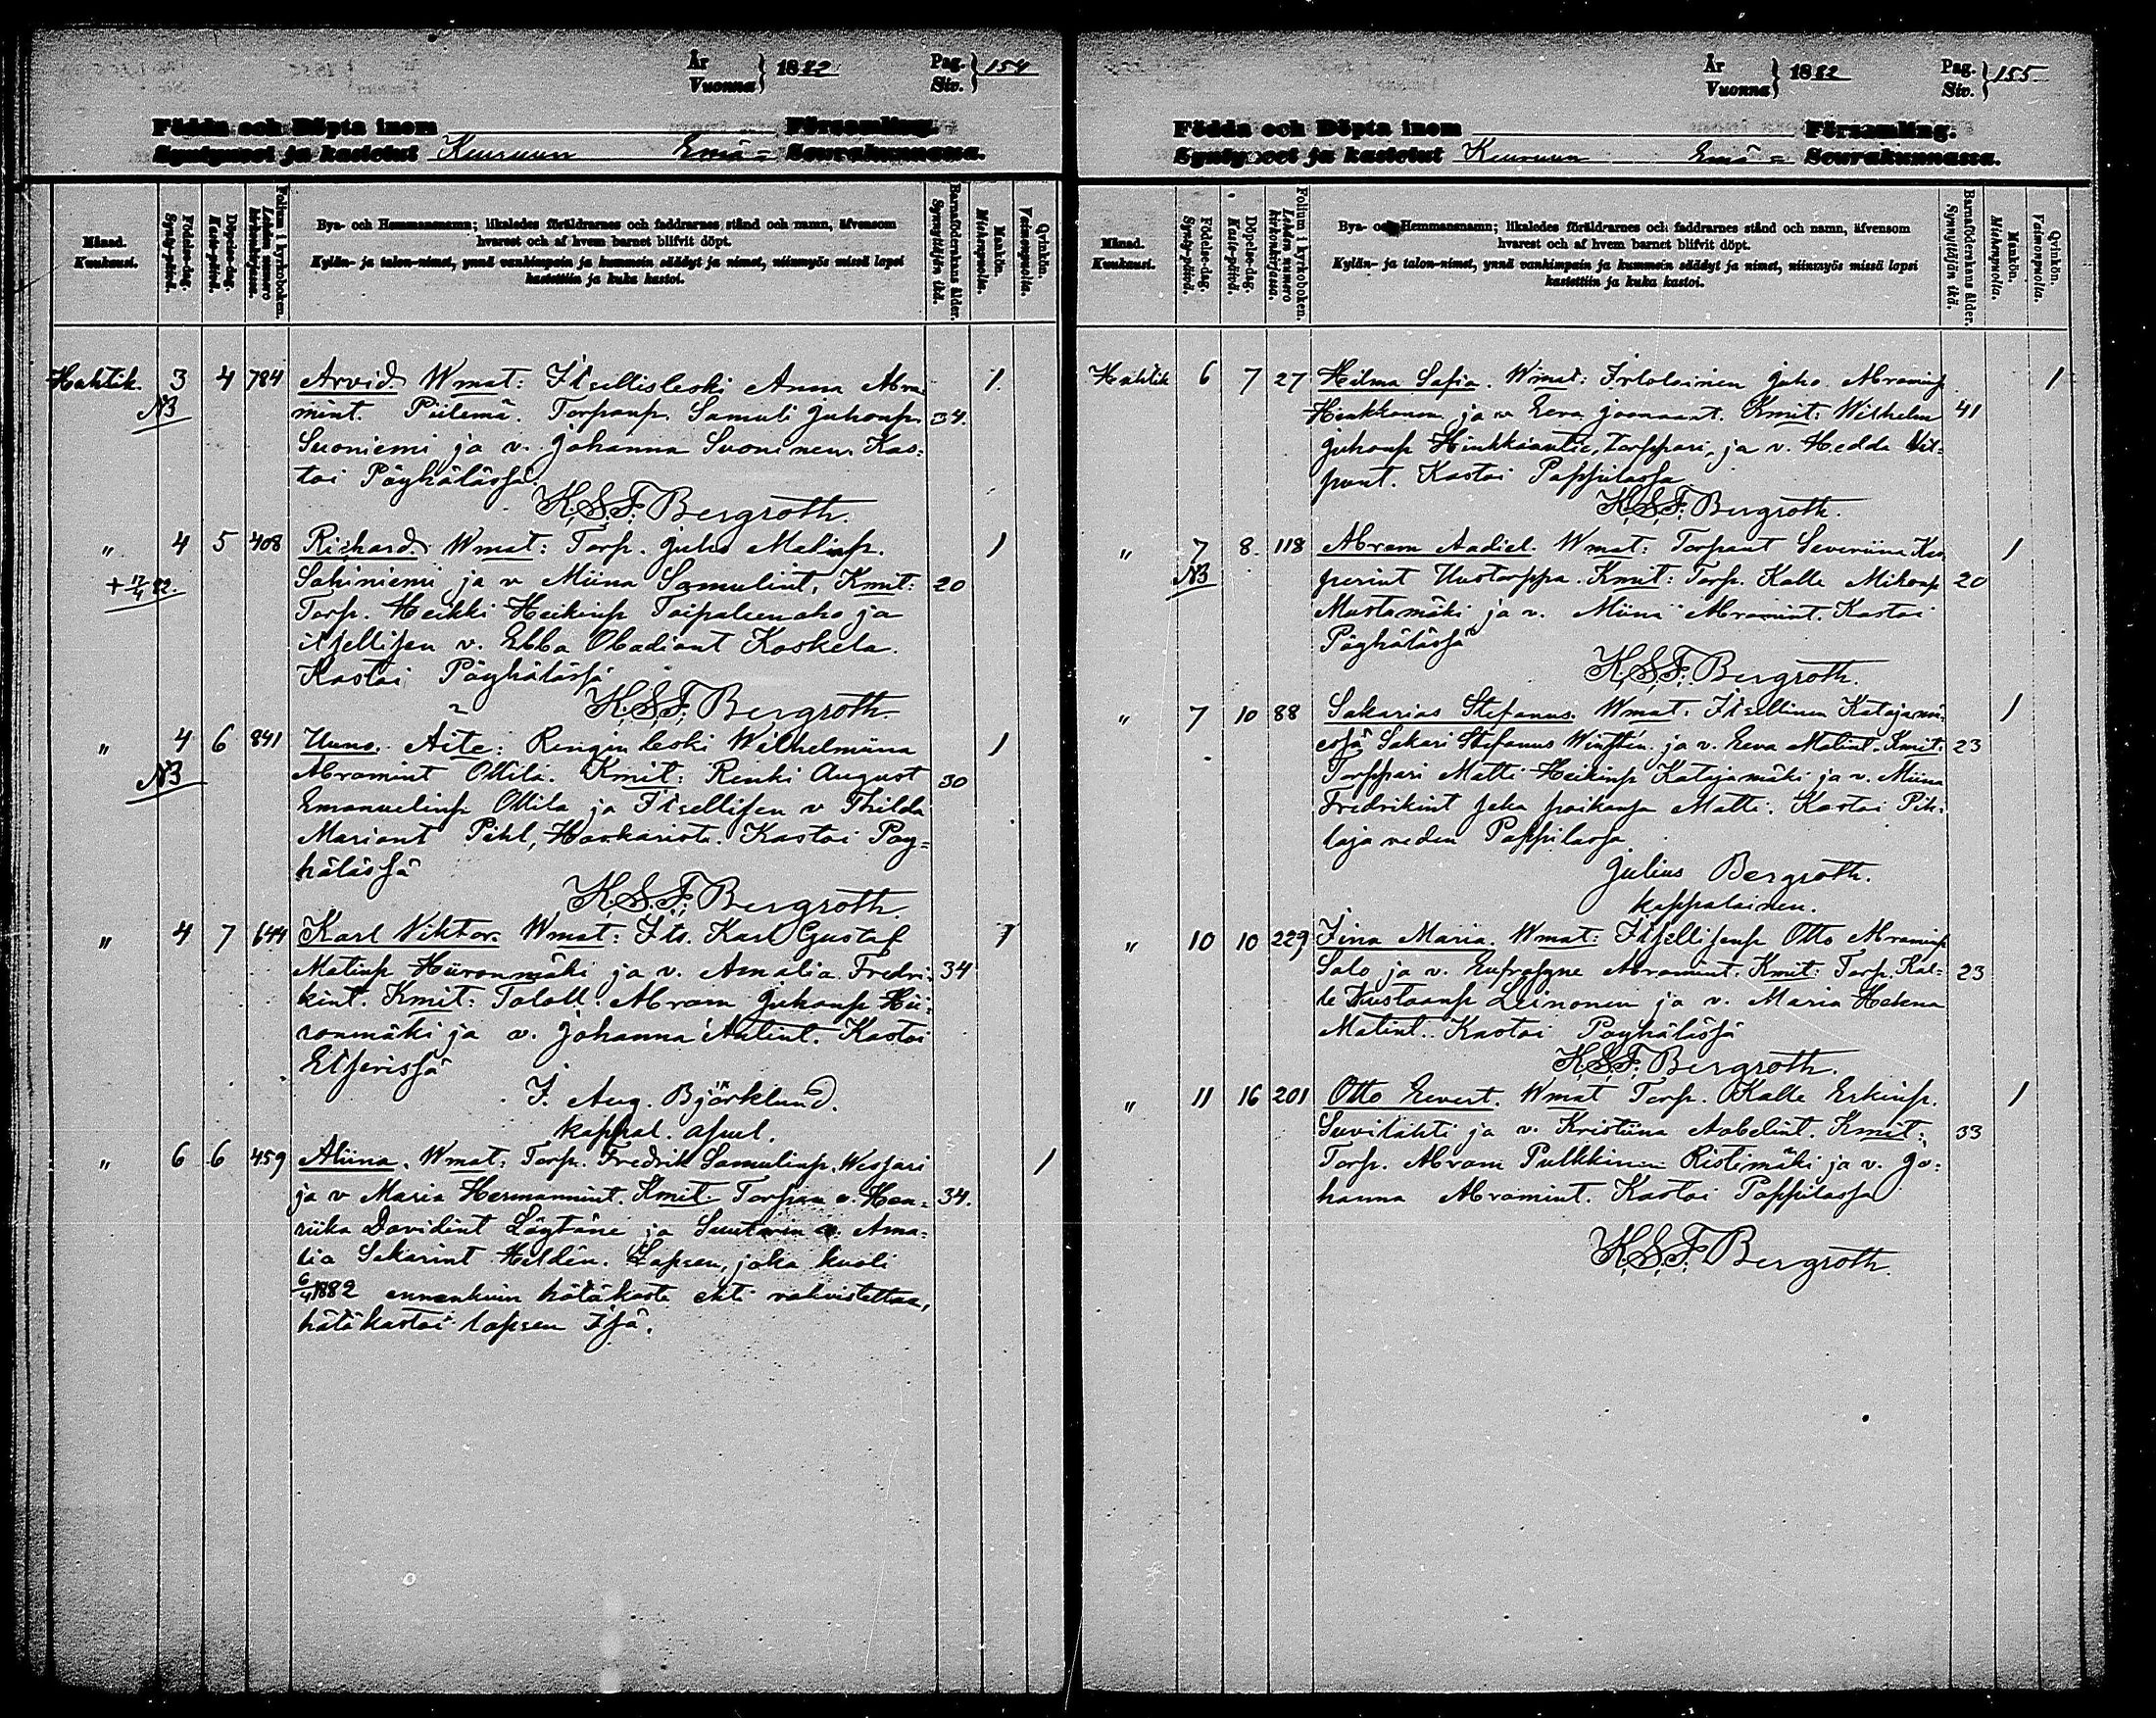 År
Vuonna } 1882
Pag.
Siv. } 154
Födda och Döpta inom Församling.
Syntyneet ja kastetut Keuruun Emä= Seurakunnassa.
Månad.
Kuukausi.
Födelse-dag.
Synty-päivä.
Döpelse-dag.
Kaste-päivä.
Folium i kyrkoboken.
Lehden numero
kirkonkirjassa.
Bya- och Hemmansnamn; likaledes föräldrarnes och faddrarnes stånd och namn, äfvensom
hvarest och af hvem barnet blifvit döpt.
Kylän- ja talon-nimet, ynnä vanhimpain ja kummein säädyt ja nimet, niinmyös missä lapsi
kastettiin ja kuka kastoi.
Barnaföderskans ålder.
Synnyttäjän ikä.
Mankön.
Miehenpuolia.
Qvinkön.
Vaimonpuolia.
Huhtik. 3 4 784 Arvid. Wmat: Itsellisleski Anna Abra 1.
NB mint. Piilemä. Torpanp. Samuli Juhonp. 34.
Suoniemi ja v. Johanna Suoninen. Kas=
toi Pöyhölässä.
K.S.F. Bergroth.
" 4 5 408 Richard. Wmat: Torp. Juho Matinp. 1
+ 17/4 82. Sahiniemi ja v Miina Samulint, Kmit: 20
Torp. Heikki Heikinp Taipaleenaho ja
itsellisen v. Ebba Obadiant Koskela.
Kastoi Pöyhölässä
K.S.F. Bergroth.
" 4 6 841 Uuno. Äite: Rengin leski Wilhelmiina 1
NB Abramint Ollila. Kmit: Renki August 30
Emanuelinp Ollila ja Itsellisen v Thilda
Mariant Pihl, Haskarista. Kastoi Pöy=
hölässä
K.S.F. Bergroth.
" 4 7 644 Karl Viktor. Wmat: Its. Karl Gustaf 1
Matinp Hiironmäki ja v. Amalia Fredri= 34
kint. Kmit: Taloll. Abram Juhonp Hii=
ronmäki ja v. Johanna Antint. Kastoi
Etserissä
J. Aug. Björklund.
kappal. apul.
" 6 6 459 Aliina. Wmat: Torp. Fredrik Samulinp. Wespari 1
ja v Maria Hermannint. Kmit: Torpan v. Hen= 34.
riika Davidint Löytäne ja Suutarin v. Ama=
lia Sakarint Heldén. Lapsen, joka kuoli
6/4 1882 ennenkuin hätäkaste ehti vahvistettaa,
hätäkastoi lapsen Isä.
År
Vuonna } 1882
Pag.
Siv. } 155
Födda och Döpta inom Församling.
Syntyneet ja kastetut Keuruun Emä= Seurakunnassa.
Månad.
Kuukausi.
Födelse-dag.
Synty-päivä.
Döpelse-dag.
Kaste-päivä.
Folium i kyrkoboken.
Lehden numero
kirkonkirjassa.
Bya- och Hemmansnamn; likaledes föräldrarnes och faddrarnes stånd och namn, äfvensom
hvarest och af hvem barnet blifvit döpt.
Kylän- ja talon-nimet, ynnä vanhimpain ja kummein säädyt ja nimet, niinmyös missä lapsi
kastettiin ja kuka kastoi.
Barnaföderskans ålder.
Synnyttäjän ikä.
Mankön.
Miehenpuolia.
Qvinkön.
Vaimonpuolia.
Huhtik 6 7 27 Hilma Sofia. Wmat: Irtolainen Juho Abraminp 1
ja v Eeva Joonaant. Kmit: Wilhelm 41
Juhonp torppari, ja v. Hedda Vil=
punt. Kastoi Pappilassa
K.S.F. Bergroth.
" 7 8. 118 Abram Aadiel. Wmat: Torpant Severiina Kas 1
NB perint Uustorppa. Kmit: Torp. Kalle Mikonp 20
Mustamäki ja v. Miina Abramint. Kastoi
Pöyhölässä
K.S.F. Bergroth.
" 7 10 88 Sakarias Stefanus. Wmat. Itsellinen Katajamä= 1
essä Sakari Stefanus Winstén. ja v. Eeva Matint. Kmit: 23
Torppari Matti Heikinp Katajamäki ja v. Miina
Fredrikint seka poikansa Matti. Kastoi Pih=
lajaveden Pappilassa
Julius Bergroth.
kappalainen.
" 10 10 229 Fina Maria. Wmat: Itsellisenp Otto Abraminp
Salo ja v. Eufrosyne Abramint. Kmit: Torp. Kal= 23
le Kustaanp Leinonen ja v. Maria Helena
Matint. Kastoi Pöyhölässä
K.S.F. Bergroth.
" 11 16 201 Otto Evert. Wmat Torp. Kalle Erkinp. 1
Suvilahti ja v. Kristiina Aabelint. Kmit: 33
Torp. Abram Pulkkinen Ristimäki ja v. Jo=
hanna Abramint. Kastoi Pappilassa
K.S.F. Bergroth.